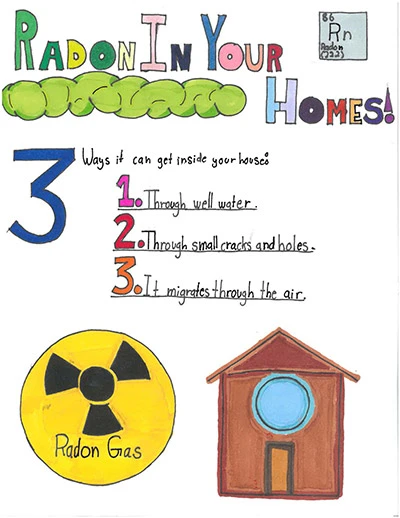 RADON IN YOUR
HOMES!
86
Rn
Radon
(222)
3
Ways it can get inside your house:
1. Through well water.
2. Through small cracks and holes.
3. It migrates through the air.
Radon Gas